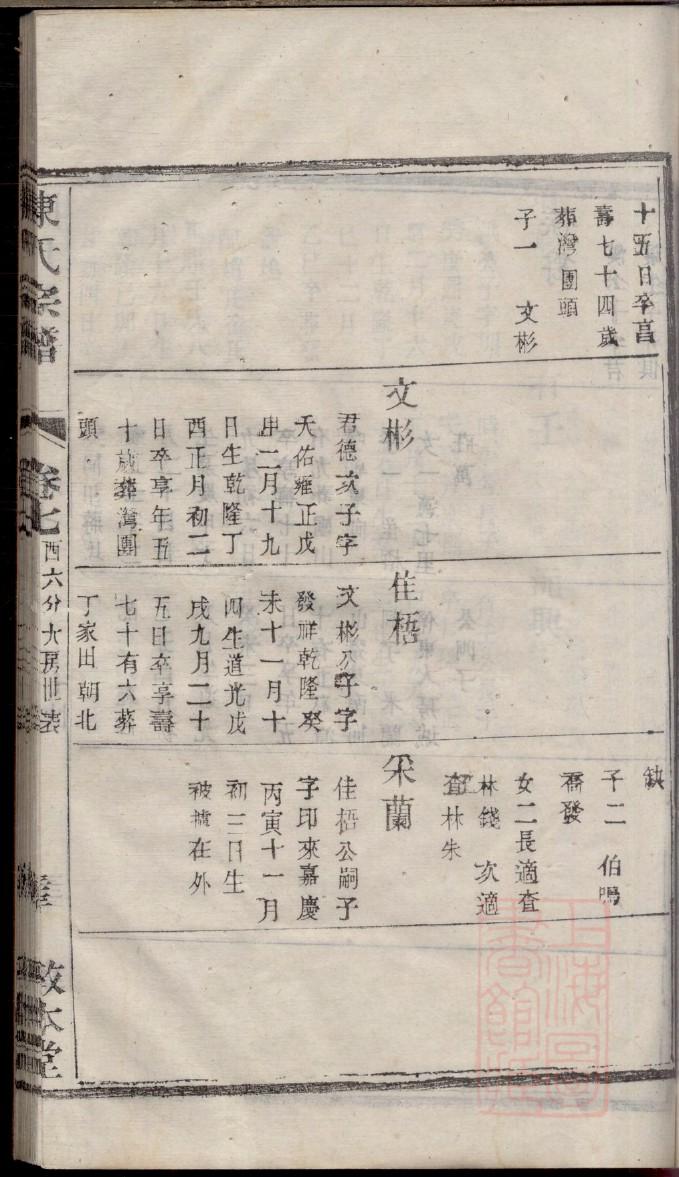 十五日卒享
壽七十四歲
葬灣團頭
子一　文彬
文彬
君德次子字
天佑雍正戊
申二月十九
日生乾隆丁
酉正月初二
日卒享年五
十歲葬灣團
頭
佳梧
文彬公子字
發祥乾隆癸
未十一月十
四生道光戊
戌九月二十
五日卒享壽
七十有六葬
丁家田朝北
缺
子二　伯鳴
喬發
女二長適查
林錢　次適
查林朱
采蘭
佳梧公嗣子
字印來嘉慶
丙寅十一月
初三日生
被擄在外
陳氏宗譜
卷七
西六分大房世表
敦本堂
上海圖書館藏